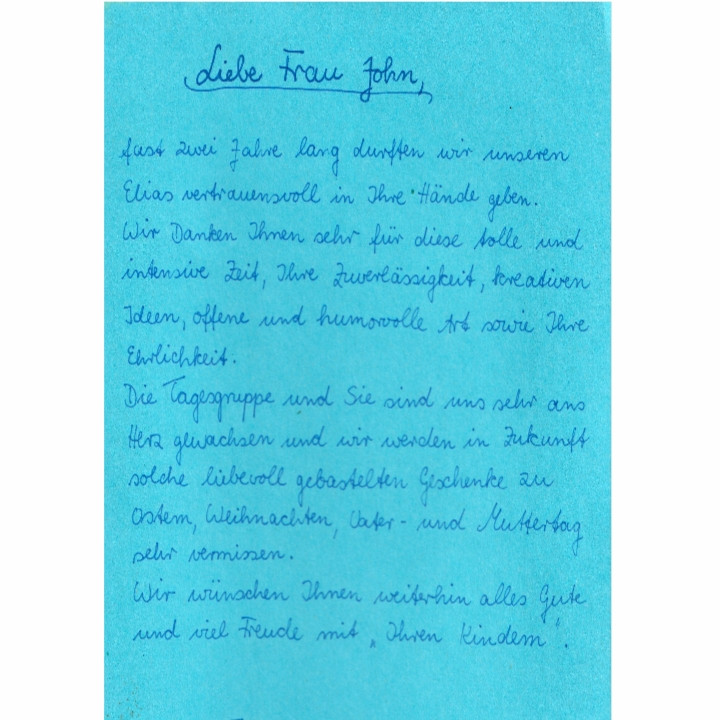 Liebe Frau John,
fast zwei Jahre lang durften wir unseren
Elias vertrauensvoll in Ihre Hände geben.
Wir Danken Ihnen sehr für diese tolle und
intensive Zeit, Ihre Zuverlässigkeit, kreativen
Ideen, offene und humorvolle Art sowie Ihre
Ehrlichkeit.
Die Tagesgruppe und Sie sind uns sehr ans
Herz gewachsen und wir werden in Zukunft
solche liebevoll gebastelten Geschenke zu
Ostern, Weihnachten, Vater- und Muttertag
sehr vermissen.
Wir wünschen Ihnen weiterhin alles Gute
und viel Freude mit „Ihren Kindern".